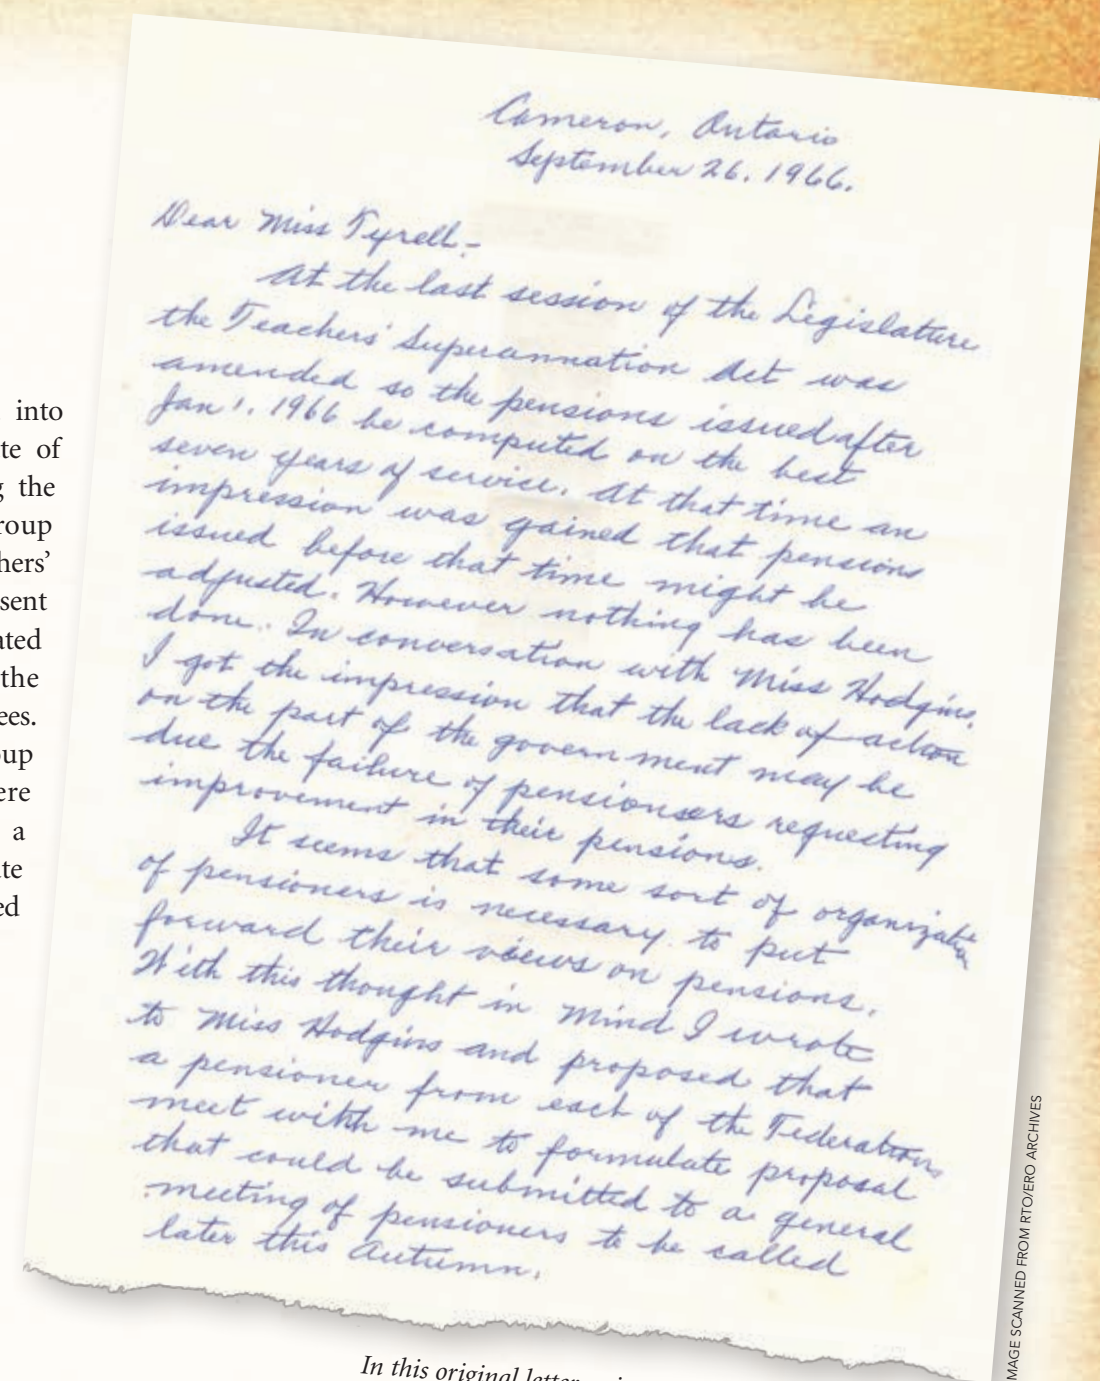 Cameron, Ontario
September 26. 1966.
Dear Miss Tyrell.-
At the last session of the Legislature
the Teachers' Superannuation Act was
amended so the pensions issued after
Jan 1. 1966 be computed on the best
seven years of service. At that time an
impression was gained that pensions
issued before that time might be
adjusted. However nothing has been
done. In conversation with Miss Hodgins,
I got the impression that the lack of action
on the part of the government may be
due the failure of pensionsers requesting
improvement in their pensions.
It seems that some sort of organization
of pensioners is necessary to put
forward their views on pensions.
With this thought in mind I wrote
to Miss Hodgins and proposed that
a pensioner from each of the Federations
meet with me to formulate proposal
that could be submitted to a general
meeting of pensioners to be called
later this Autumn.
into
te of
g the
roup
hers'
sent
ated
the
ees.
oup
ere
a
ate
ed
In this original letter
MAGE SCANNED FROM RTO/ERO ARCHIVES